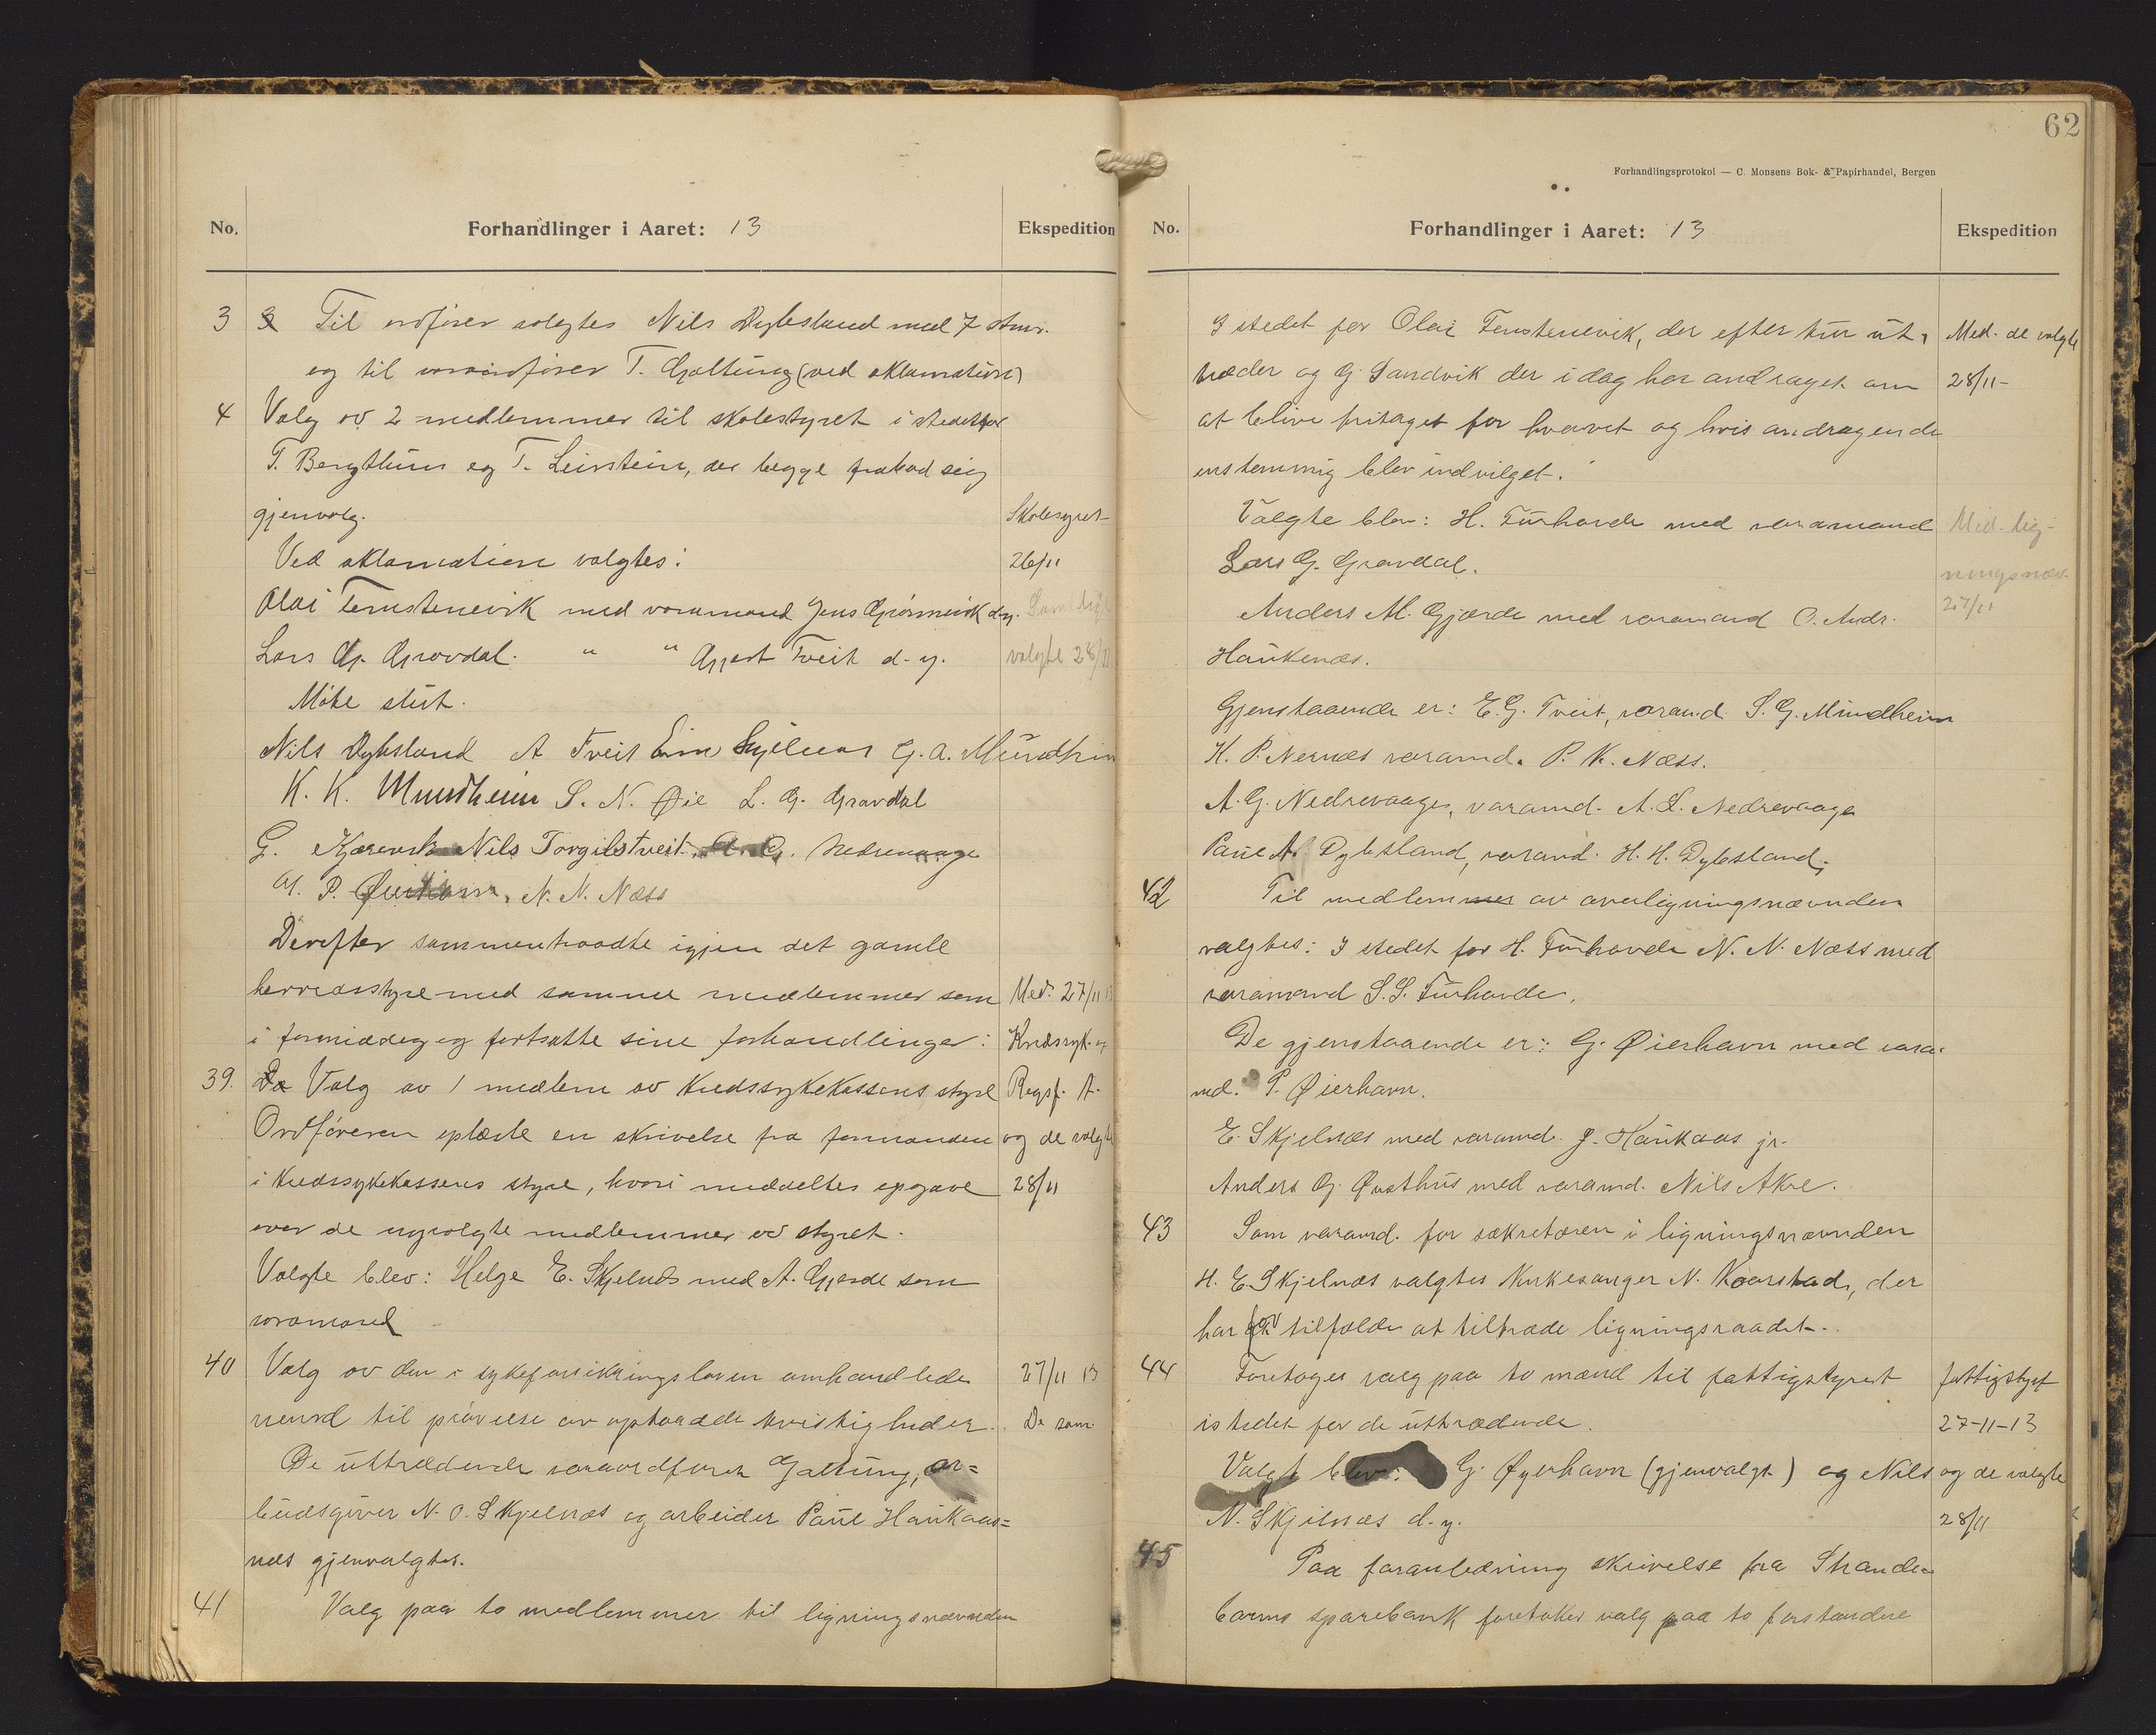 No. Forhandlinger i Aaret: 13 Ekspedition
3 Til ordfører valgtes Nils Dybsland med 7 stmr.
og til varaordfører T. Galtung (ved aklamation)
4 Valg av 2 medlemmer til skolestyret i stedet for
T. Bergthun og T. Leinstein, der begge frabad sig
gjenvalg. Skolesyret
Ved aklamation valgtes: 26/11
Olai Tenstenevik med varamand Jens d.y. Samt
Lars G. Gravdal. " " Asgest Tveit d.y. valgte 28/11
Møte slut.
Nils Dybsland A Tveit Skjelnes G. A. Mundheim
K. K. Mundheim S. N. Øie L. G. Gravdal
G. Nils Torgilstveit. A. G. Nedrevaage
A. P. N. N. Næss
Derefter sammentraadte igjen det gamle
herredsstyre med samme medlemmer som Med. 27/11 13
i formiddag og fortsatte sine forhandlinger: Kredssyk. og
39. Valg av 1 medlem av Kredssykekassens styre Regsf. A.
Ordføreren oplæste en skrivelse fra formanden og de valgte
i Kredssykekassens styre, hvori meddeltes opgave 28/11
over de nyvalgte medlemmer av styret.
Valgte blev: Helge E. Skjelnæs med A. Gjerde som
varamand
40 Valg av den i sykeforsikringsloven omhandlede 27/11 13
nevnd til prøvelse av opstaaede tvistigheder. De sam
De uttrædende varaordfører Galtung, ar=
beidsgiver N. O. Skjelnæs og arbeider Paul Haukaas=
næs gjenvalgtes.
41 Valg paa to medlemmer til ligningsnævnden
62
Forhandlingsprotokol — C. Monsens Bok- & Papirhandel, Bergen
No. Forhandlinger i Aaret: 13 Ekspedition
I stedet for Olai Tenstenevik, der efter tur ut- Med. de valgte
træder og G. Sandvik der i dag har andraget om 28/11-
at blive fritaget for hvervet og hvis andragende
enstemmig blev indvilget.
Valgte blev: H. Turhovde med varamand Med. lig-
Lars G. Gravdal. ningsnæv.
Anders M. Gjærde med varamand O. Andr. 27/11
Haukenæs.
Gjenstaaende er: E. G. Tveit, varamd. S. G. Mundheim
K. P. Nernæs varamd. P. K. Næss.
A. G. Nedrevaage, varamd. A. L. Nedrevaage
Paul N. Dybsland, varamd. H. H. Dybsland.
42 Til medlemmer av overligningsnævnden
valgtes: I stedet for H. Turhovde N. N. Næss med
varamand S. S. Turhovde.
De gjenstaaende er: G. Øierhavn med vara-
md. P. Øierhavn.
E. Skjelnæs med varamd. J. Haukaas jr.
Anders G. Øvsthus med varamd. Nils Akre.
43 Som varamd. for sekretæren i ligningsnævnden
H. E. Skjelnæs valgtes Kirkesanger N. Kaarstad, der
har for tilfælde at tiltræde ligningsraadet.
44 Foretages valg paa to mænd til fattigstyret fattigstyret
istedet for de uttrædende. 27-11-13
Valgt blev: G. Øyerhavn (gjenvalgt) og Nils og de valgte
N. Skjelnæs d.y. 28/11
45 Paa foranledning skrivelse fra Strande-
barms sparebank foretokes valg paa to forstandere